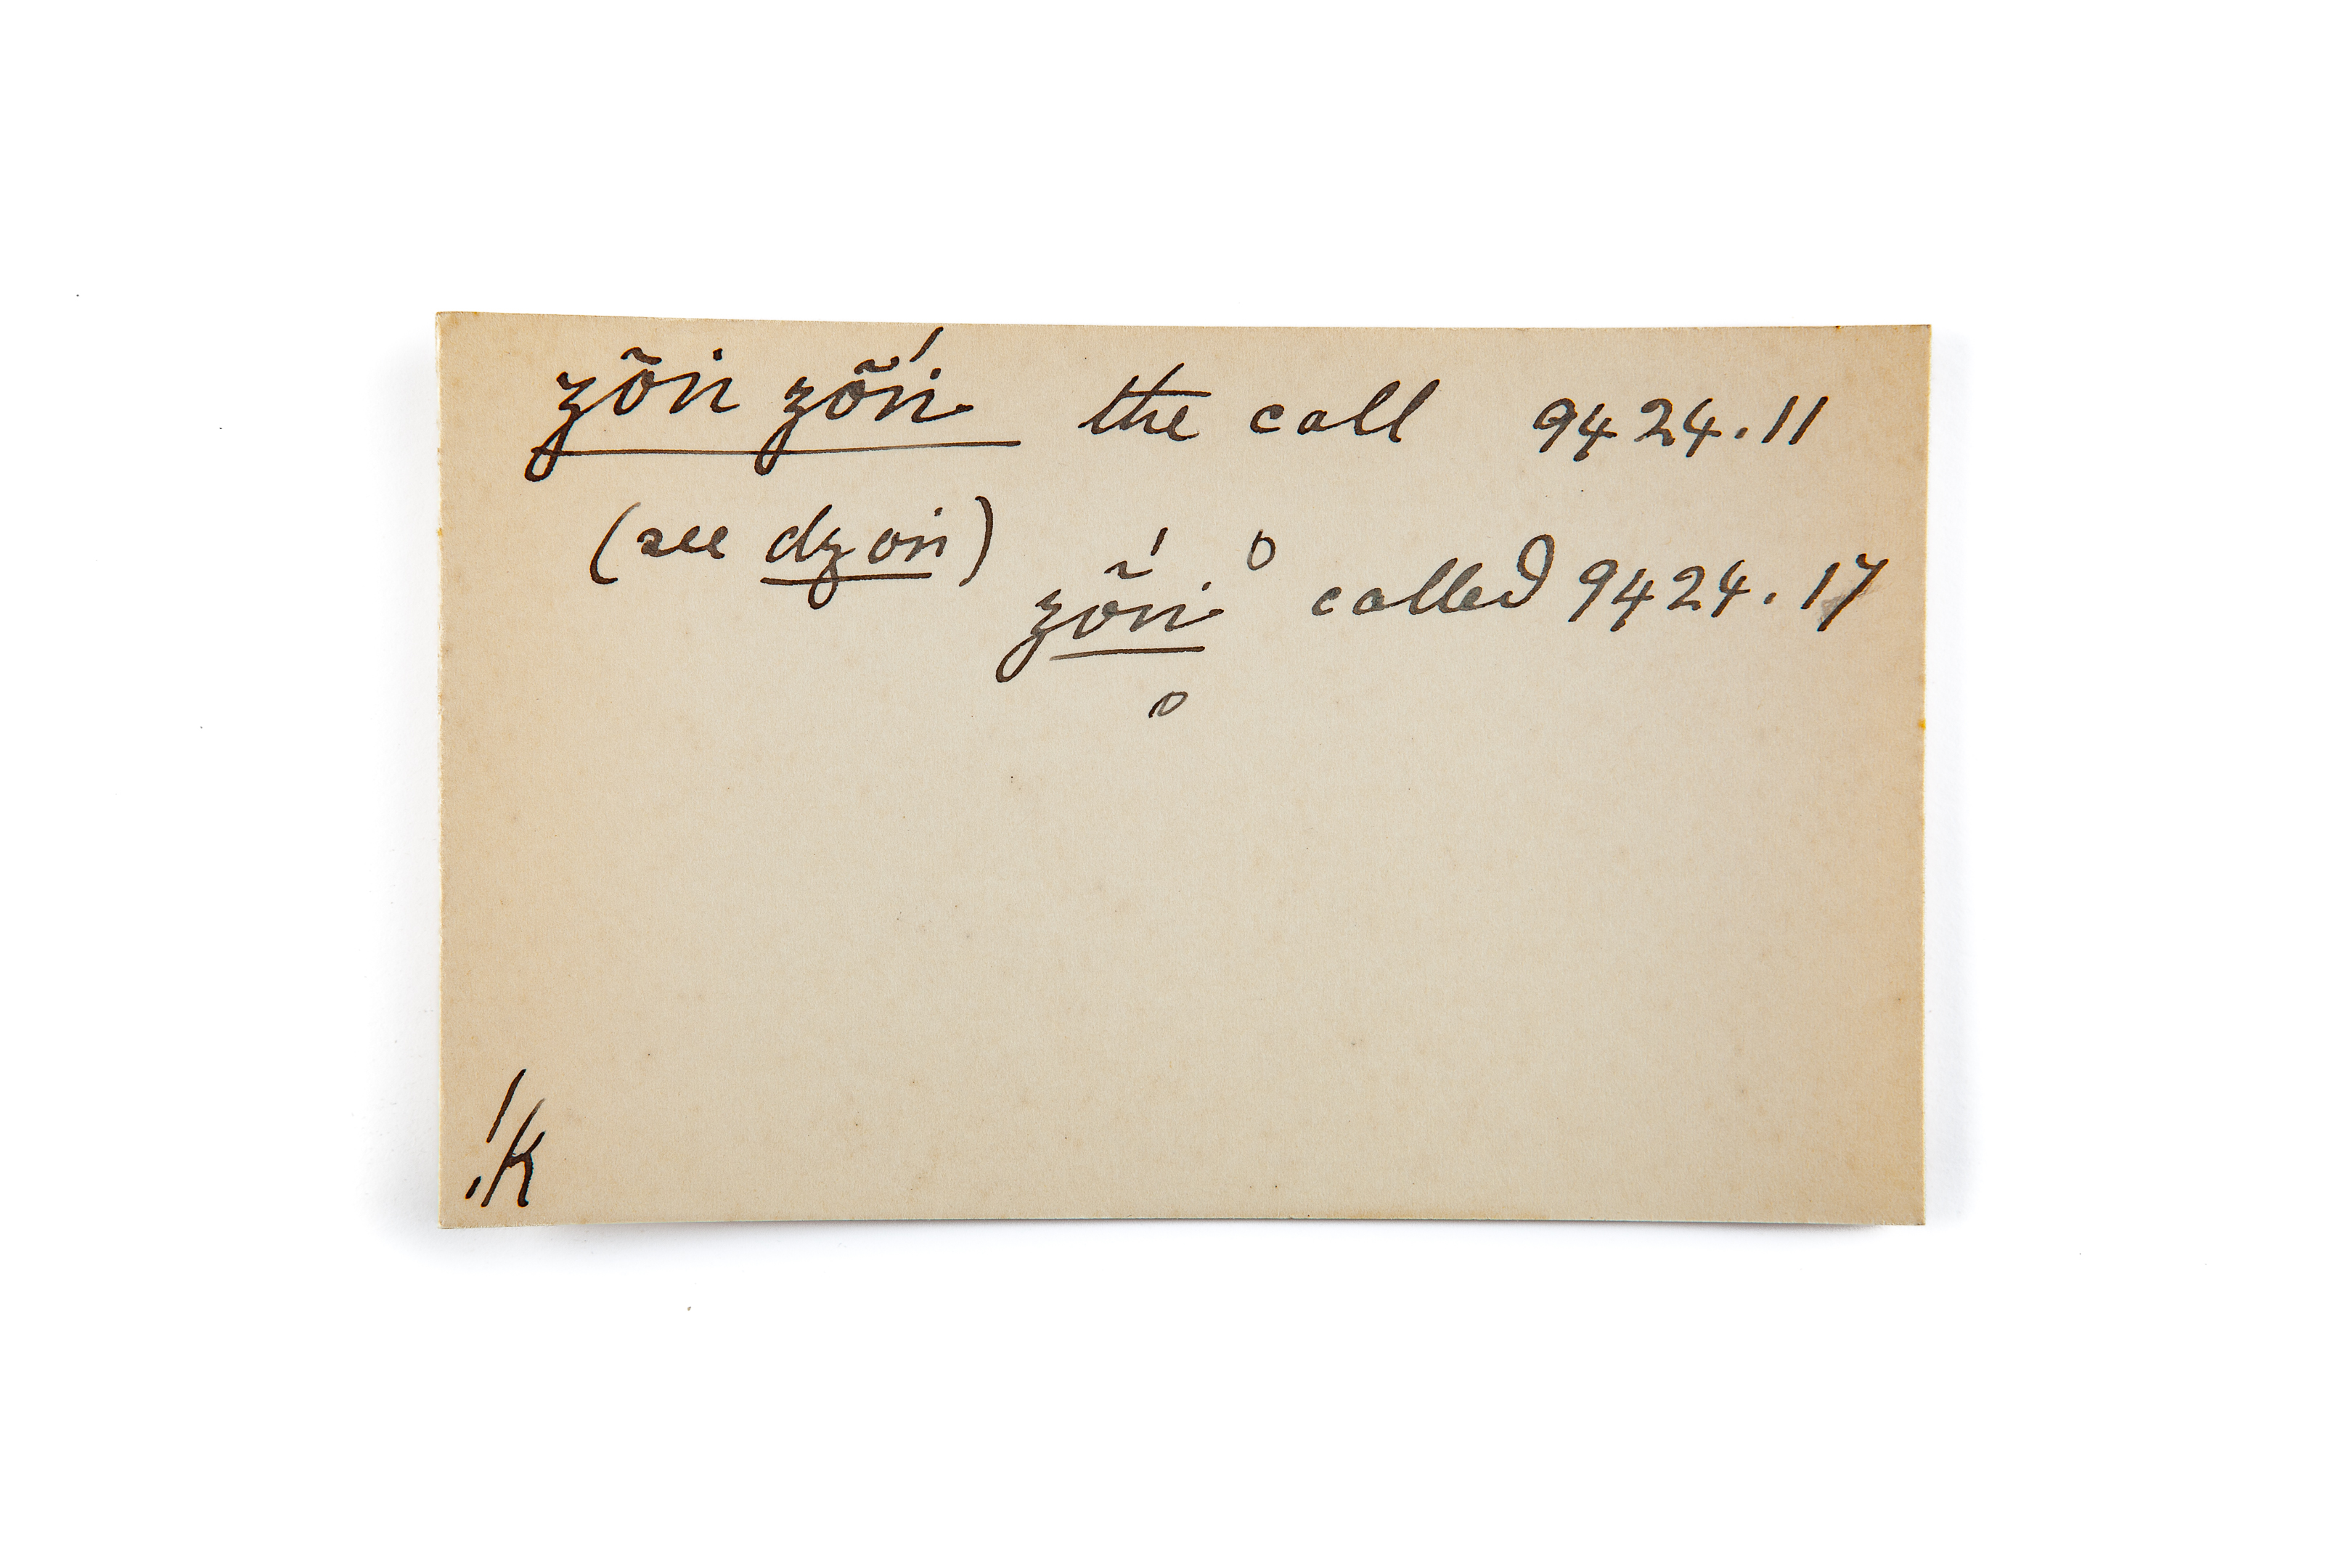 zõṅ zṍṅ the call 9424.11
(see dzoṅ)
zṍṅ o called 9424.17
o
!k